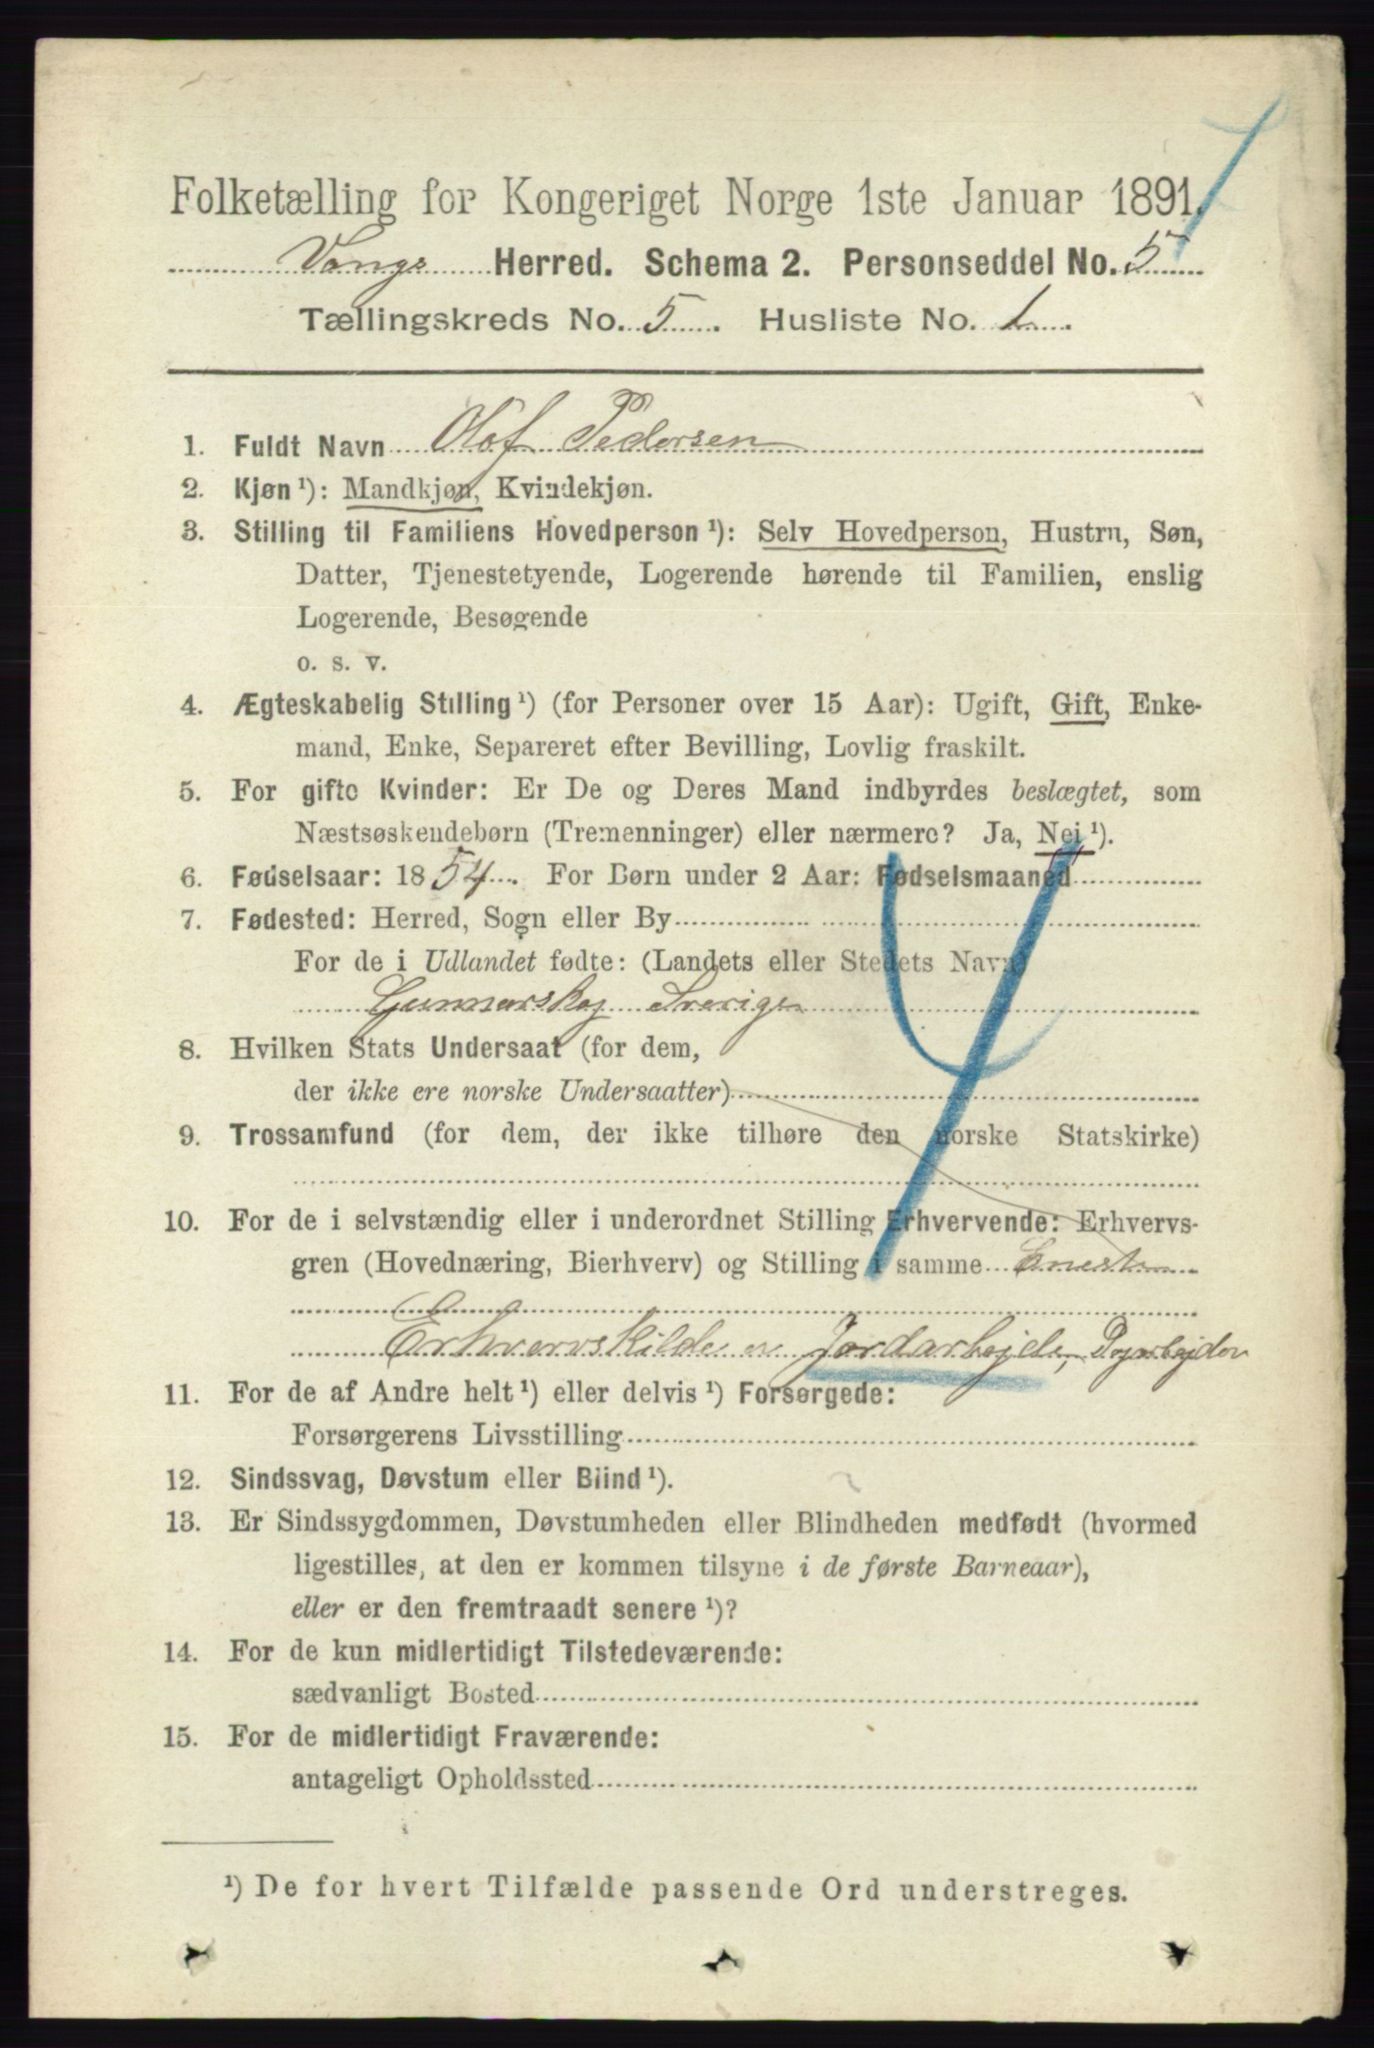 Folketælling for Kongeriget Norge 1ste Januar 1891.
Vangs Herred. Schema 2. Personseddel No. 5
Tællingskreds No. 5. Husliste No. 1.
1. Fuldt Navn Olof Pedersen
2. Kjøn ¹): Mandkjøn, Kvindekjøn.
3. Stilling til Familiens Hovedperson ¹): Selv Hovedperson, Hustru, Søn,
Datter, Tjenestetyende, Logerende hørende til Familien, enslig
Logerende, Besøgende
o. s. v.
4. Ægteskabelig Stilling ¹) (for Personer over 15 Aar): Ugift, Gift, Enke-
mand, Enke, Separeret efter Bevilling, Lovlig fraskilt.
5. For gifte Kvinder: Er De og Deres Mand indbyrdes beslægtet, som
Næstsøskendebørn (Tremenninger) eller nærmere? Ja, Nei ¹).
6. Fødselsaar: 1854. For Børn under 2 Aar: Fødselsmaaned
7. Fødested: Herred, Sogn eller By
For de i Udlandet fødte: (Landets eller Stedets Navn)
Gunnarskog Sverige
8. Hvilken Stats Undersaat (for dem,
der ikke ere norske Undersaatter)
9. Trossamfund (for dem, der ikke tilhøre den norske Statskirke)
10. For de i selvstændig eller i underordnet Stilling Erhvervende: Erhvervs-
gren (Hovednæring, Bierhverv) og Stilling i samme Eneste
Erhvervskilde er Jordarbejde, Dagarbejder
11. For de af Andre helt ¹) eller delvis ¹) Forsørgede:
Forsørgerens Livsstilling
12. Sindssvag, Døvstum eller Blind ¹).
13. Er Sindssygdommen, Døvstumheden eller Blindheden medfødt (hvormed
ligestilles, at den er kommen tilsyne i de første Barneaar),
eller er den fremtraadt senere ¹)?
14. For de kun midlertidigt Tilstedeværende:
sædvanligt Bosted
15. For de midlertidigt Fraværende:
antageligt Opholdssted
¹) De for hvert Tilfælde passende Ord understreges.